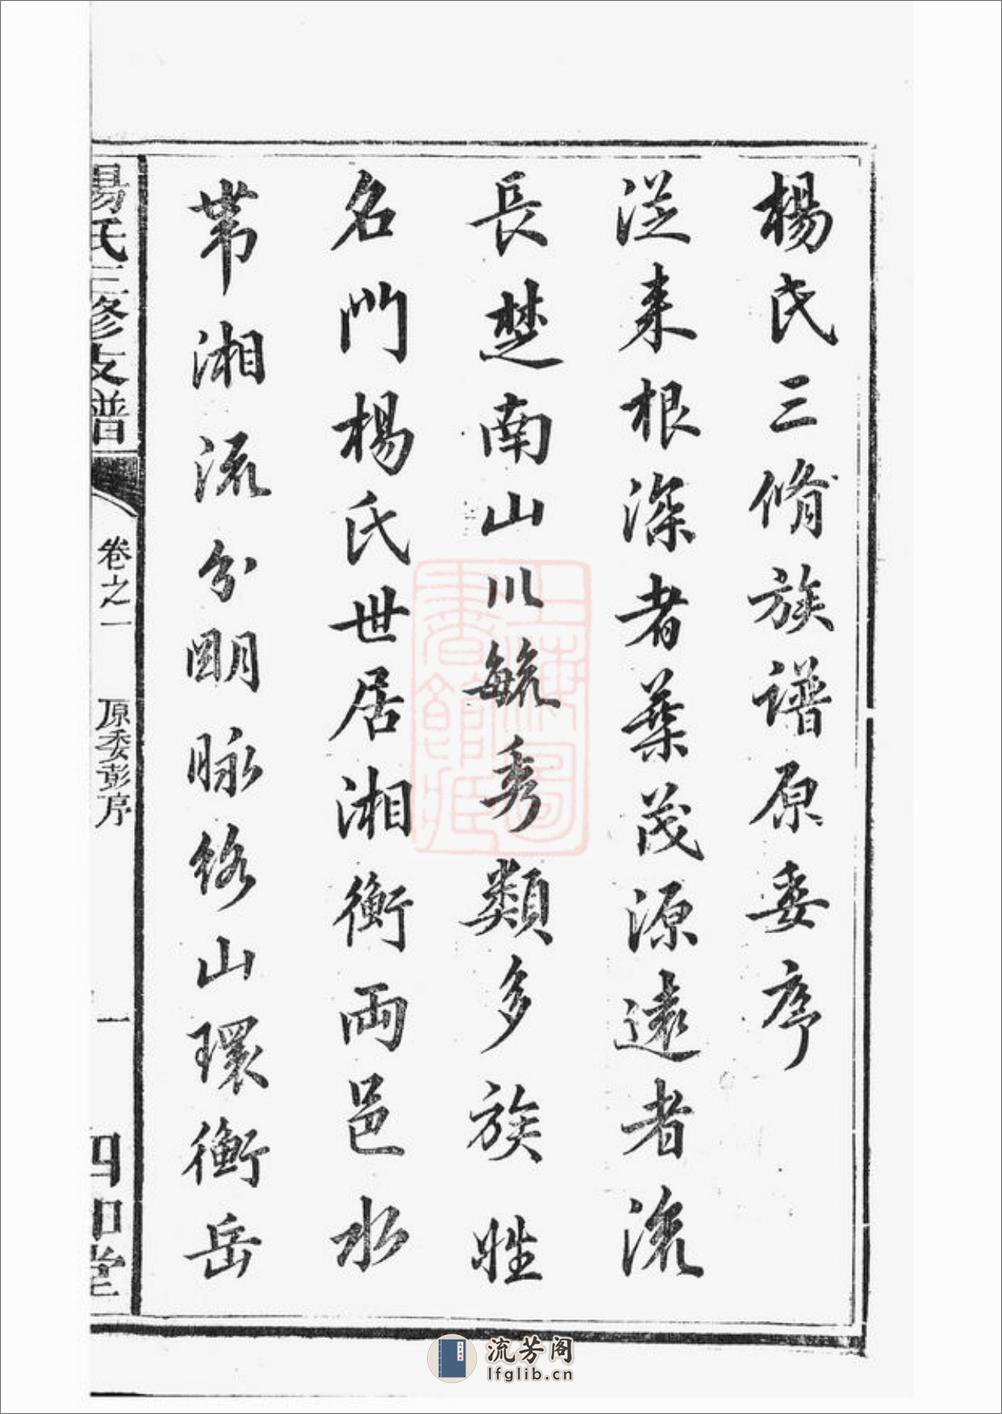 楊氏三脩族譜原委序
從来根深者葉茂源遠者流
長楚南山川毓秀類多族姓
名門楊氏世居湘衡兩邑水
帶湘流分明脉絡山環衡岳
楊氏三修支譜
卷之一
原委彭序
一
四知堂
上海圖書館藏
流芳阁
lfglib.cn